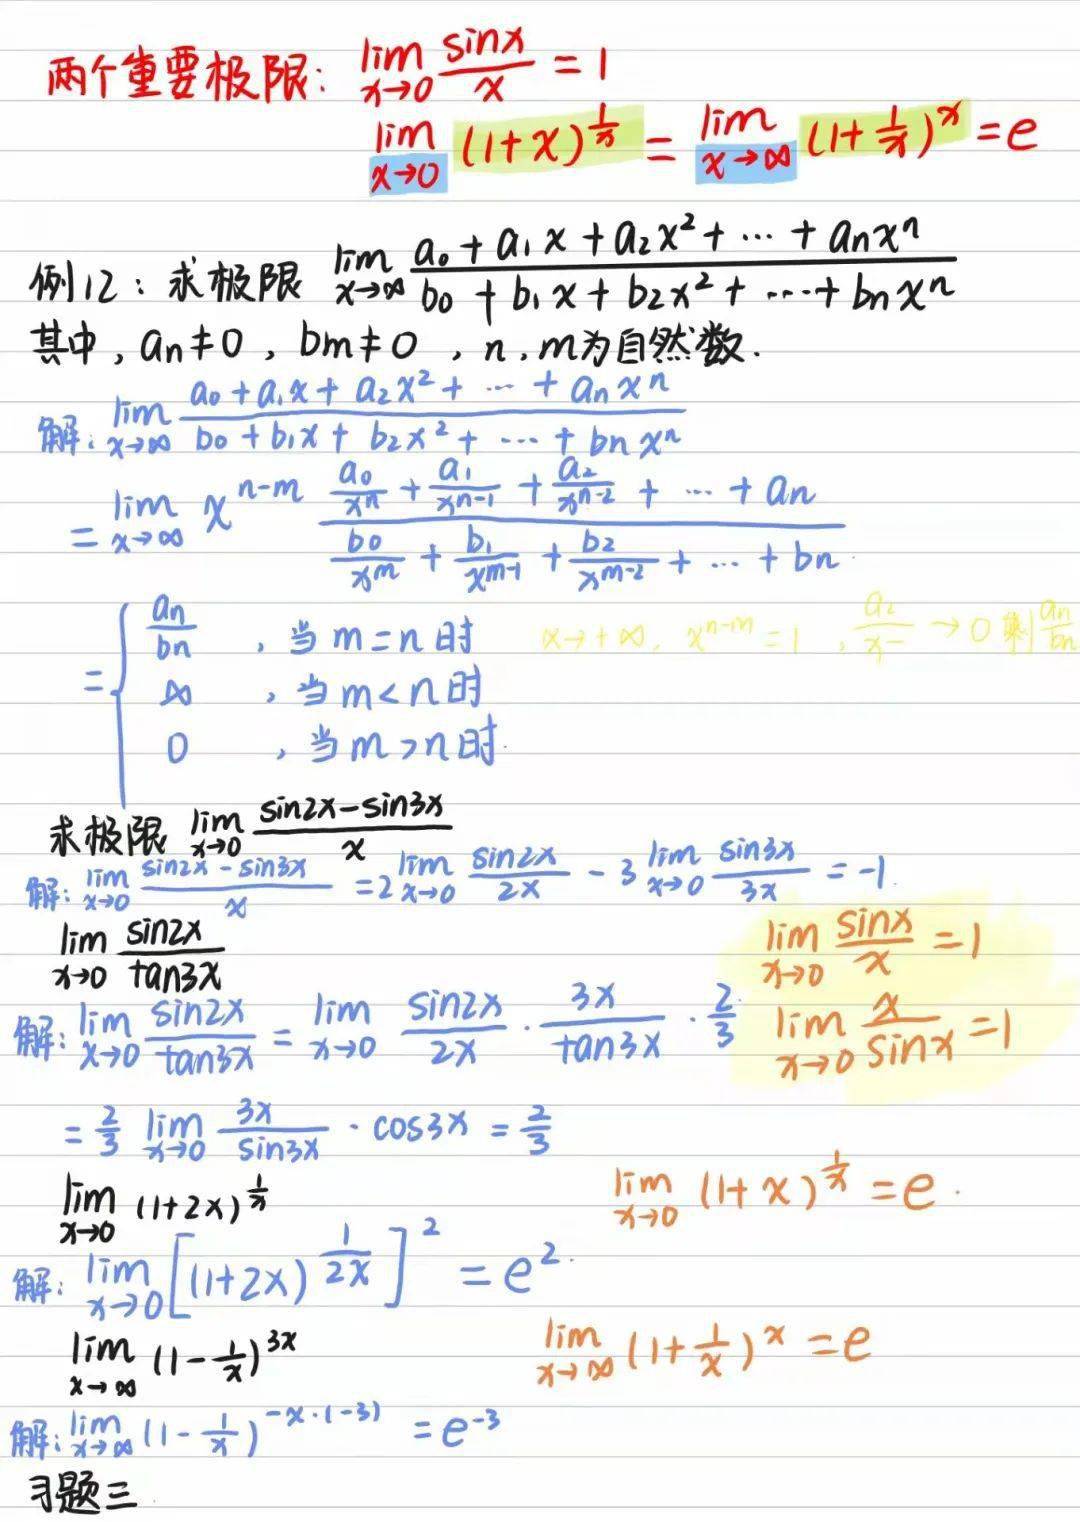 两个重要极限: lim_{x→0} sinx/x = 1
lim_{x→0} (1+x)^{1/x} = lim_{x→∞} (1+1/x)^x = e
例12: 求极限 lim_{x→∞} (a₀+a₁x+a₂x²+…+aₙxⁿ)/(b₀+b₁x+b₂x²+…+bₙxⁿ)
其中, aₙ≠0, bm≠0, n, m为自然数.
解: lim_{x→∞} (a₀+a₁x+a₂x²+…+aₙxⁿ)/(b₀+b₁x+b₂x²+…+bₙxⁿ)
= lim_{x→∞} x^{n-m} (a₀/xⁿ + a₁/x^{n-1} + a₂/x^{n-2} + … + aₙ)/(b₀/x^m + b₁/x^{m-1} + b₂/x^{m-2} + … + bₙ)
= { aₙ/bₙ , 当m=n时 x→+∞, x^{n-m}=1, a₂/x⁻ →0 剩 aₙ/bₙ
∞ , 当m<n时
0 , 当m>n时.
求极限 lim_{x→0} (sin2x-sin3x)/x
解: lim_{x→0} (sin2x-sin3x)/x = 2 lim_{x→0} sin2x/2x - 3 lim_{x→0} sin3x/3x = -1.
lim_{x→0} sin2x/tan3x
lim_{x→0} sinx/x = 1
解: lim_{x→0} sin2x/tan3x = lim_{x→0} sin2x/2x · 3x/tan3x · 2/3
lim_{x→0} x/sinx = 1
= 2/3 lim_{x→0} 3x/sin3x · cos3x = 2/3
lim_{x→0} (1+2x)^{1/x}
lim_{x→0} (1+x)^{1/x} = e.
解: lim_{x→0} [(1+2x)^{1/2x}]² = e².
lim_{x→∞} (1-1/x)^{3x}
lim_{x→∞} (1+1/x)^x = e
解: lim_{x→∞} (1-1/x)^{-x·(-3)} = e^{-3}
习题三